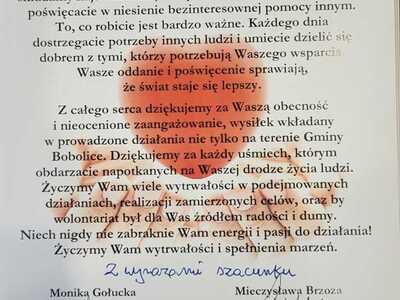 poświęcacie w niesienie bezinteresownej pomocy innym.
To, co robicie jest bardzo ważne. Każdego dnia
dostrzegacie potrzeby innych ludzi i umiecie dzielić się
dobrem z tymi, którzy potrzebują Waszego wsparcia
Wasze oddanie i poświęcenie sprawiają,
że świat staje się lepszy.
Z całego serca dziękujemy za Waszą obecność
i nieocenione zaangażowanie, wysiłek wkładany
w prowadzone działania nie tylko na terenie Gminy
Bobolice. Dziękujemy za każdy uśmiech, którym
obdarzacie napotkanych na Waszej drodze życia ludzi.
Życzymy Wam wiele wytrwałości w podejmowanych
działaniach, realizacji zamierzonych celów, oraz by
wolontariat był dla Was źródłem radości i dumy.
Niech nigdy nie zabraknie Wam energii i pasji do działania!
Życzymy Wam wytrwałości i spełnienia marzeń.
Z wyrazami szacunku
Monika Gołucka Mieczysława Brzoza